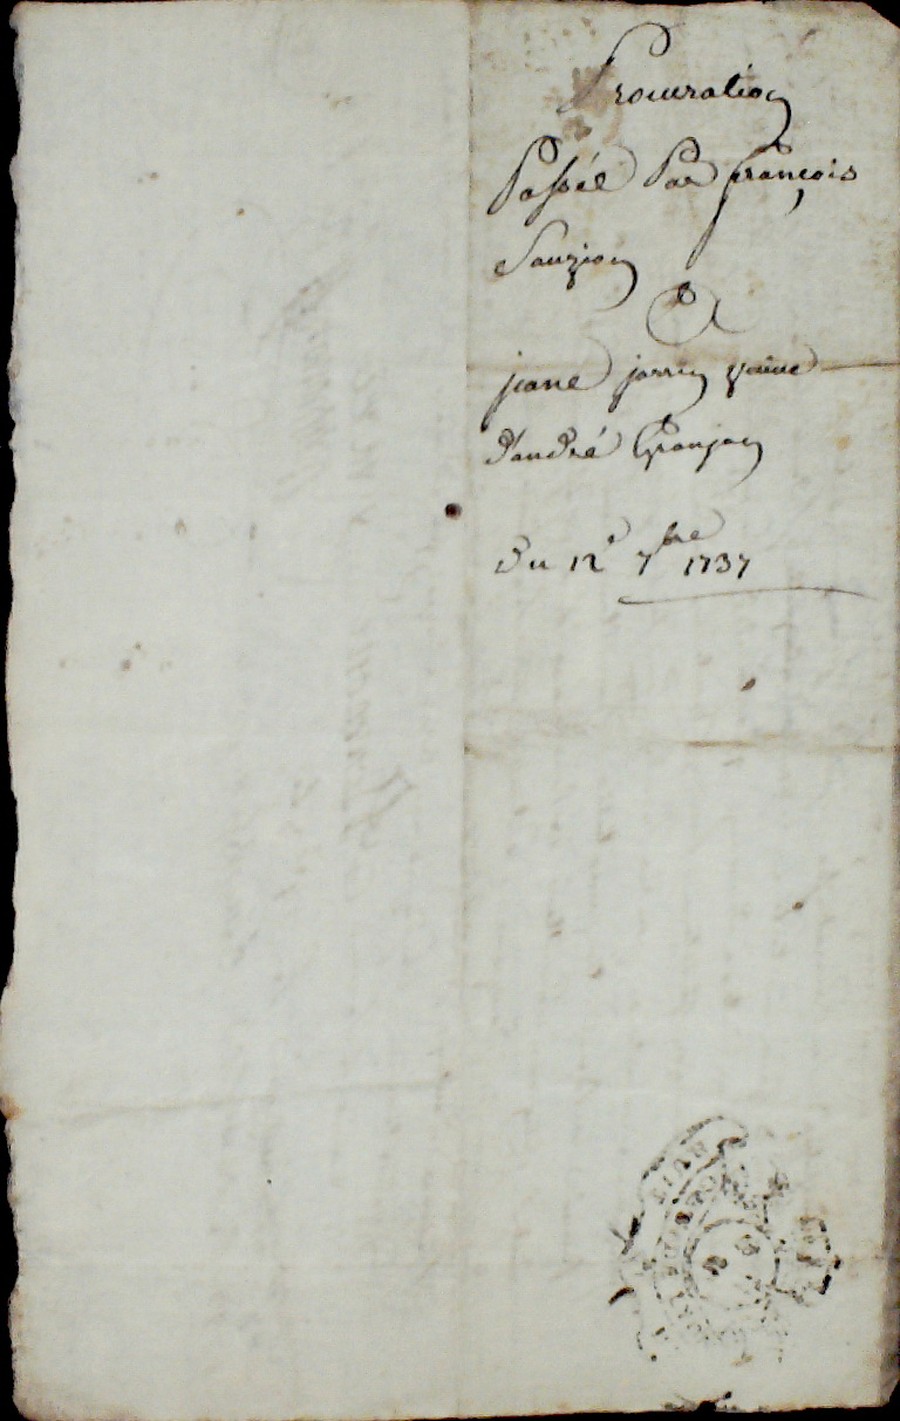 Procuration
Passée Par françois
Sauzion
A
jeane jarrin
d'andré Granjon
Du 12e 7bre 1737